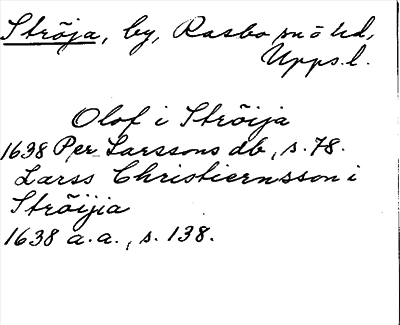 Ströja, by, Rasbo sn o hd,
Upps.l.
Olof i Ströija
1638 Per Larssons db, s. 78.
Larss Christiernsson i
Ströijia
1638 a.a., s. 138.